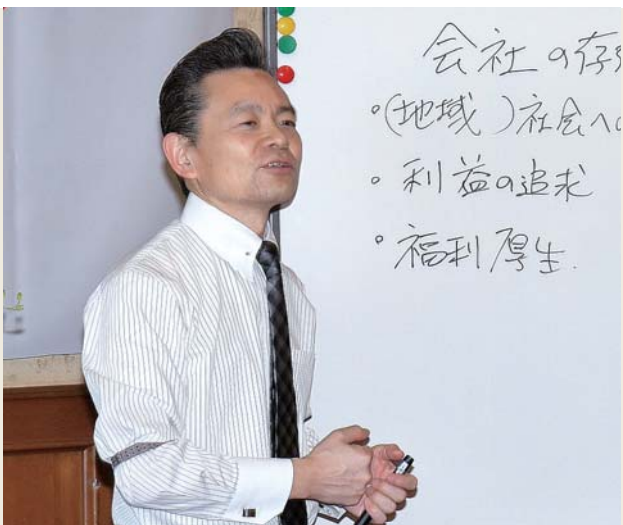 会社の存
・(地域)社会への
・利益の追求
・福利厚生.